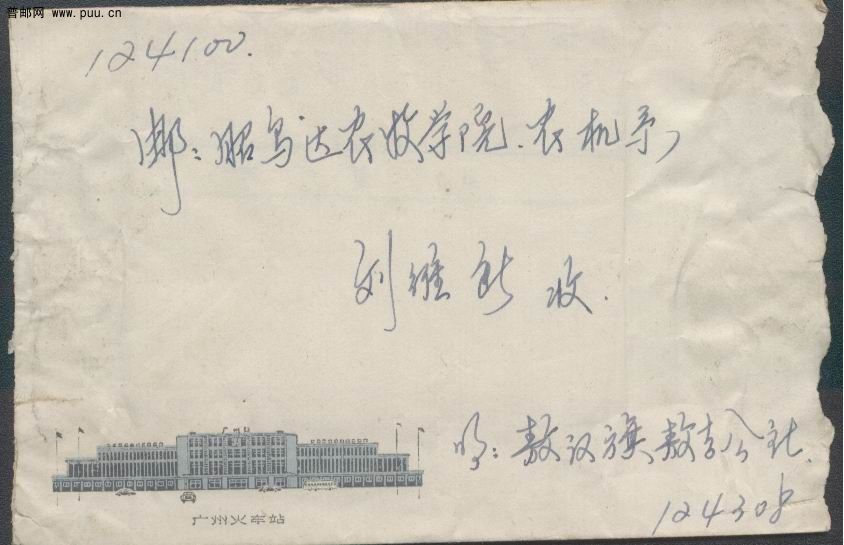 普邮网 www.puu.cn
124100.
邮：昭乌达农牧学院、农机系
刘维新 收.
敖汉旗敖吉公社.
124308
广州火车站